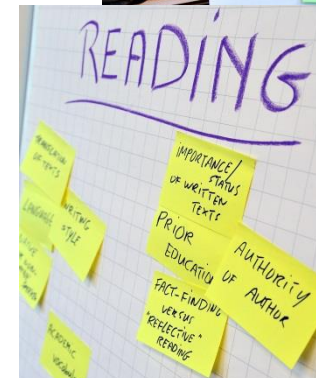 READING
TRANSLATION
OF TEXTS
LANGUAGE
WRITING
STYLE
ACADEMIC
IMPORTANCE/
STATUS
OF WRITTEN
TEXTS
PRIOR
EDUCATION
AUTHORITY
OF AUTHOR
FACT-FINDING
VERSUS
"REFLECTIVE"
READING